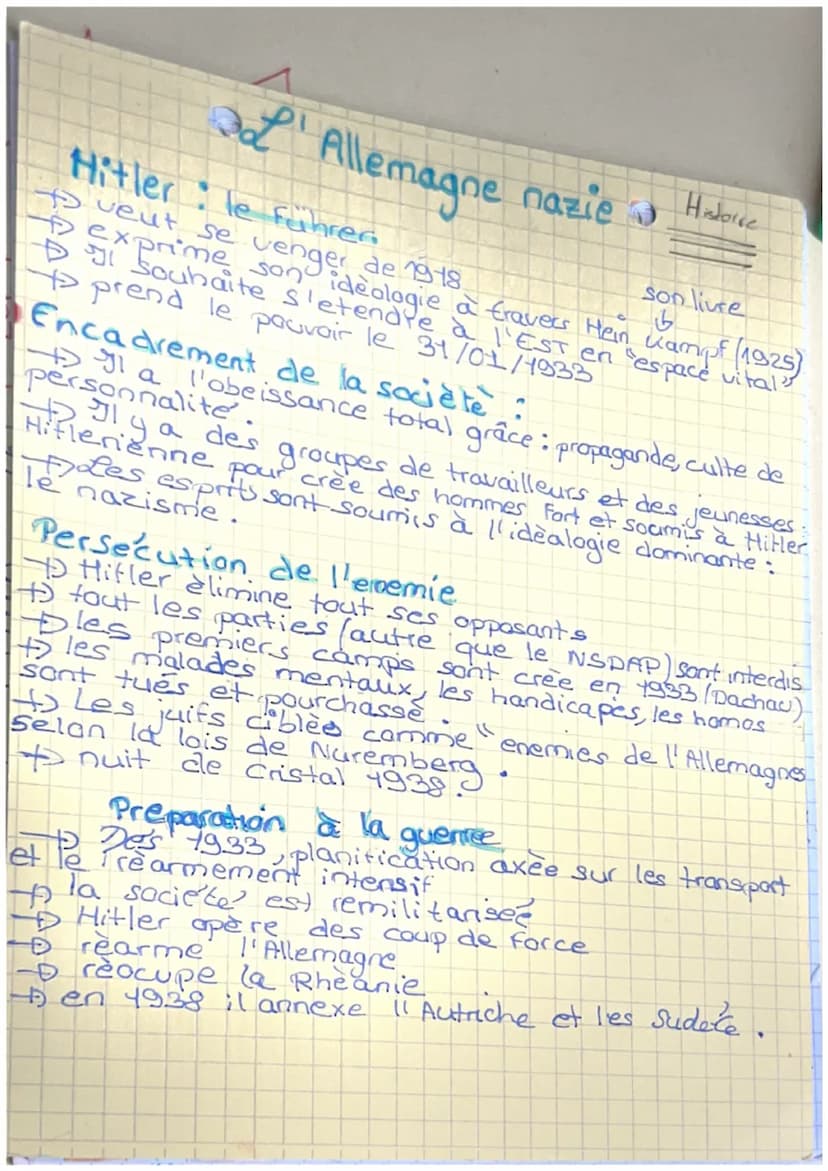 L' Allemagne nazie
Histoire
Hitler : le Führer.
→ veut se venger de 1918
son livre
→ exprime son idèologie à travers Mein Kampf (1925)
→ Il souhaite s'etendre à l'EST en "espace vital"
→ prend le pouvoir le 31/01/1933
Encadrement de la sociètè :
→ Il a l'obeissance total grâce : propagande, culte de
personnalité.
→ Il y a des groupes de travailleurs et des jeunesses
Hitlerienne pour crèe des hommes fort et soumis à Hitler
→ Les esprits sont soumis à l'idèalogie dominante :
le nazisme.
Persécution de l'enemie
→ Hitler èlimine tout ses opposants
→ tout les parties (autre que le NSDAP) sont interdis
→ les premiers camps sont crèe en 1933 (Dachau)
→ les malades mentaux, les handicapès, les homos
sont tués et pourchassé.
→ Les juifs ciblèe comme "enemies de l'Allemagnes
selon la lois de Nuremberg.
→ nuit de cristal 1938.
Preparation à la guerre
→ Dès 1933, planification axèe sur les transport
et le rèarmement intensif
→ la societé est remilitarisée
→ Hitler opère des coup de force
→ rèarme l'Allemagne
→ rèocupe la Rhèanie
→ en 1938 il annexe l'Autriche et les sudète.